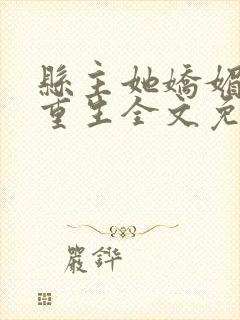 縣主她嬌媚
重生全文免
嚴鏵